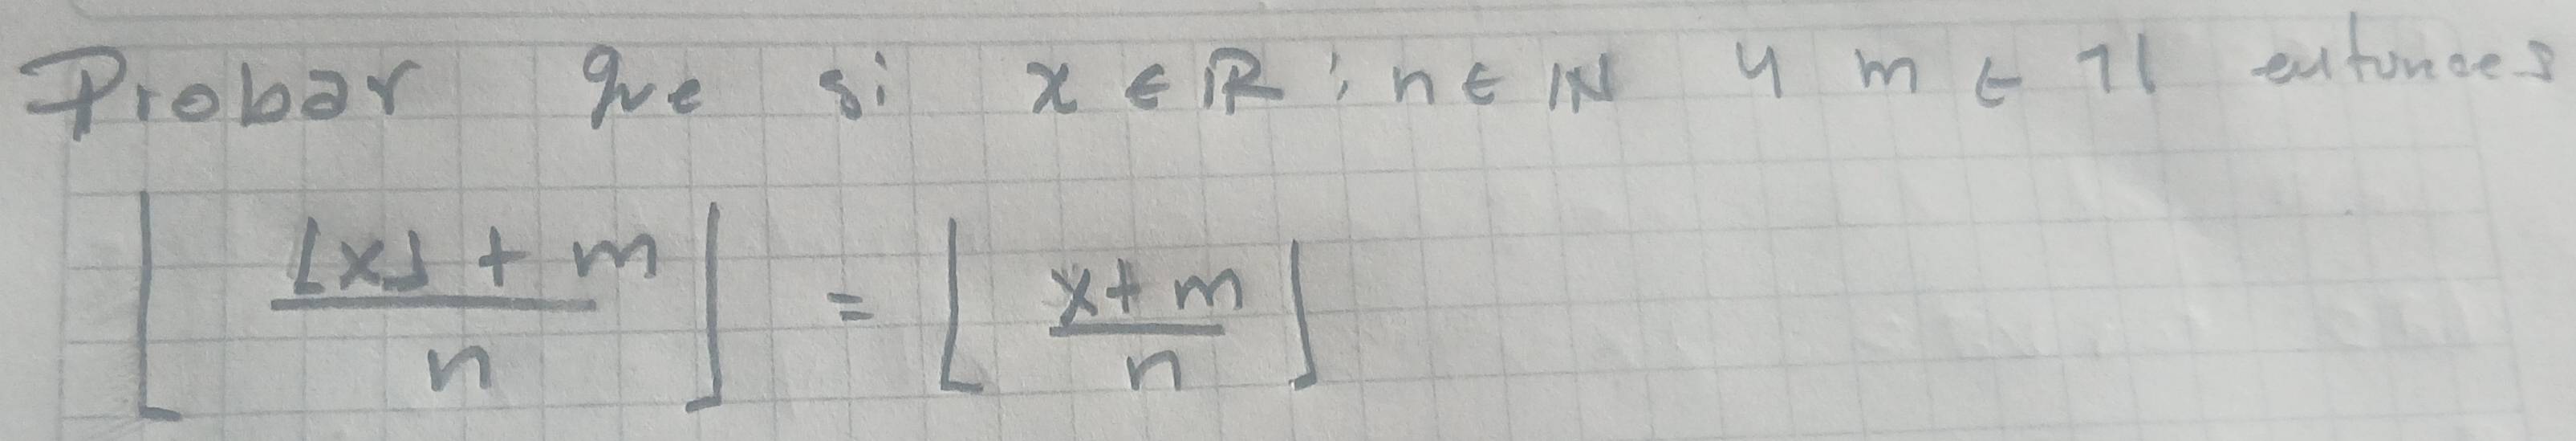 Probar que si x ∈ ℝ ; n ∈ ℕ y m ∈ ℤ entonces
⌊ (⌊x⌋ + m) / n ⌋ = ⌊ (x + m) / n ⌋